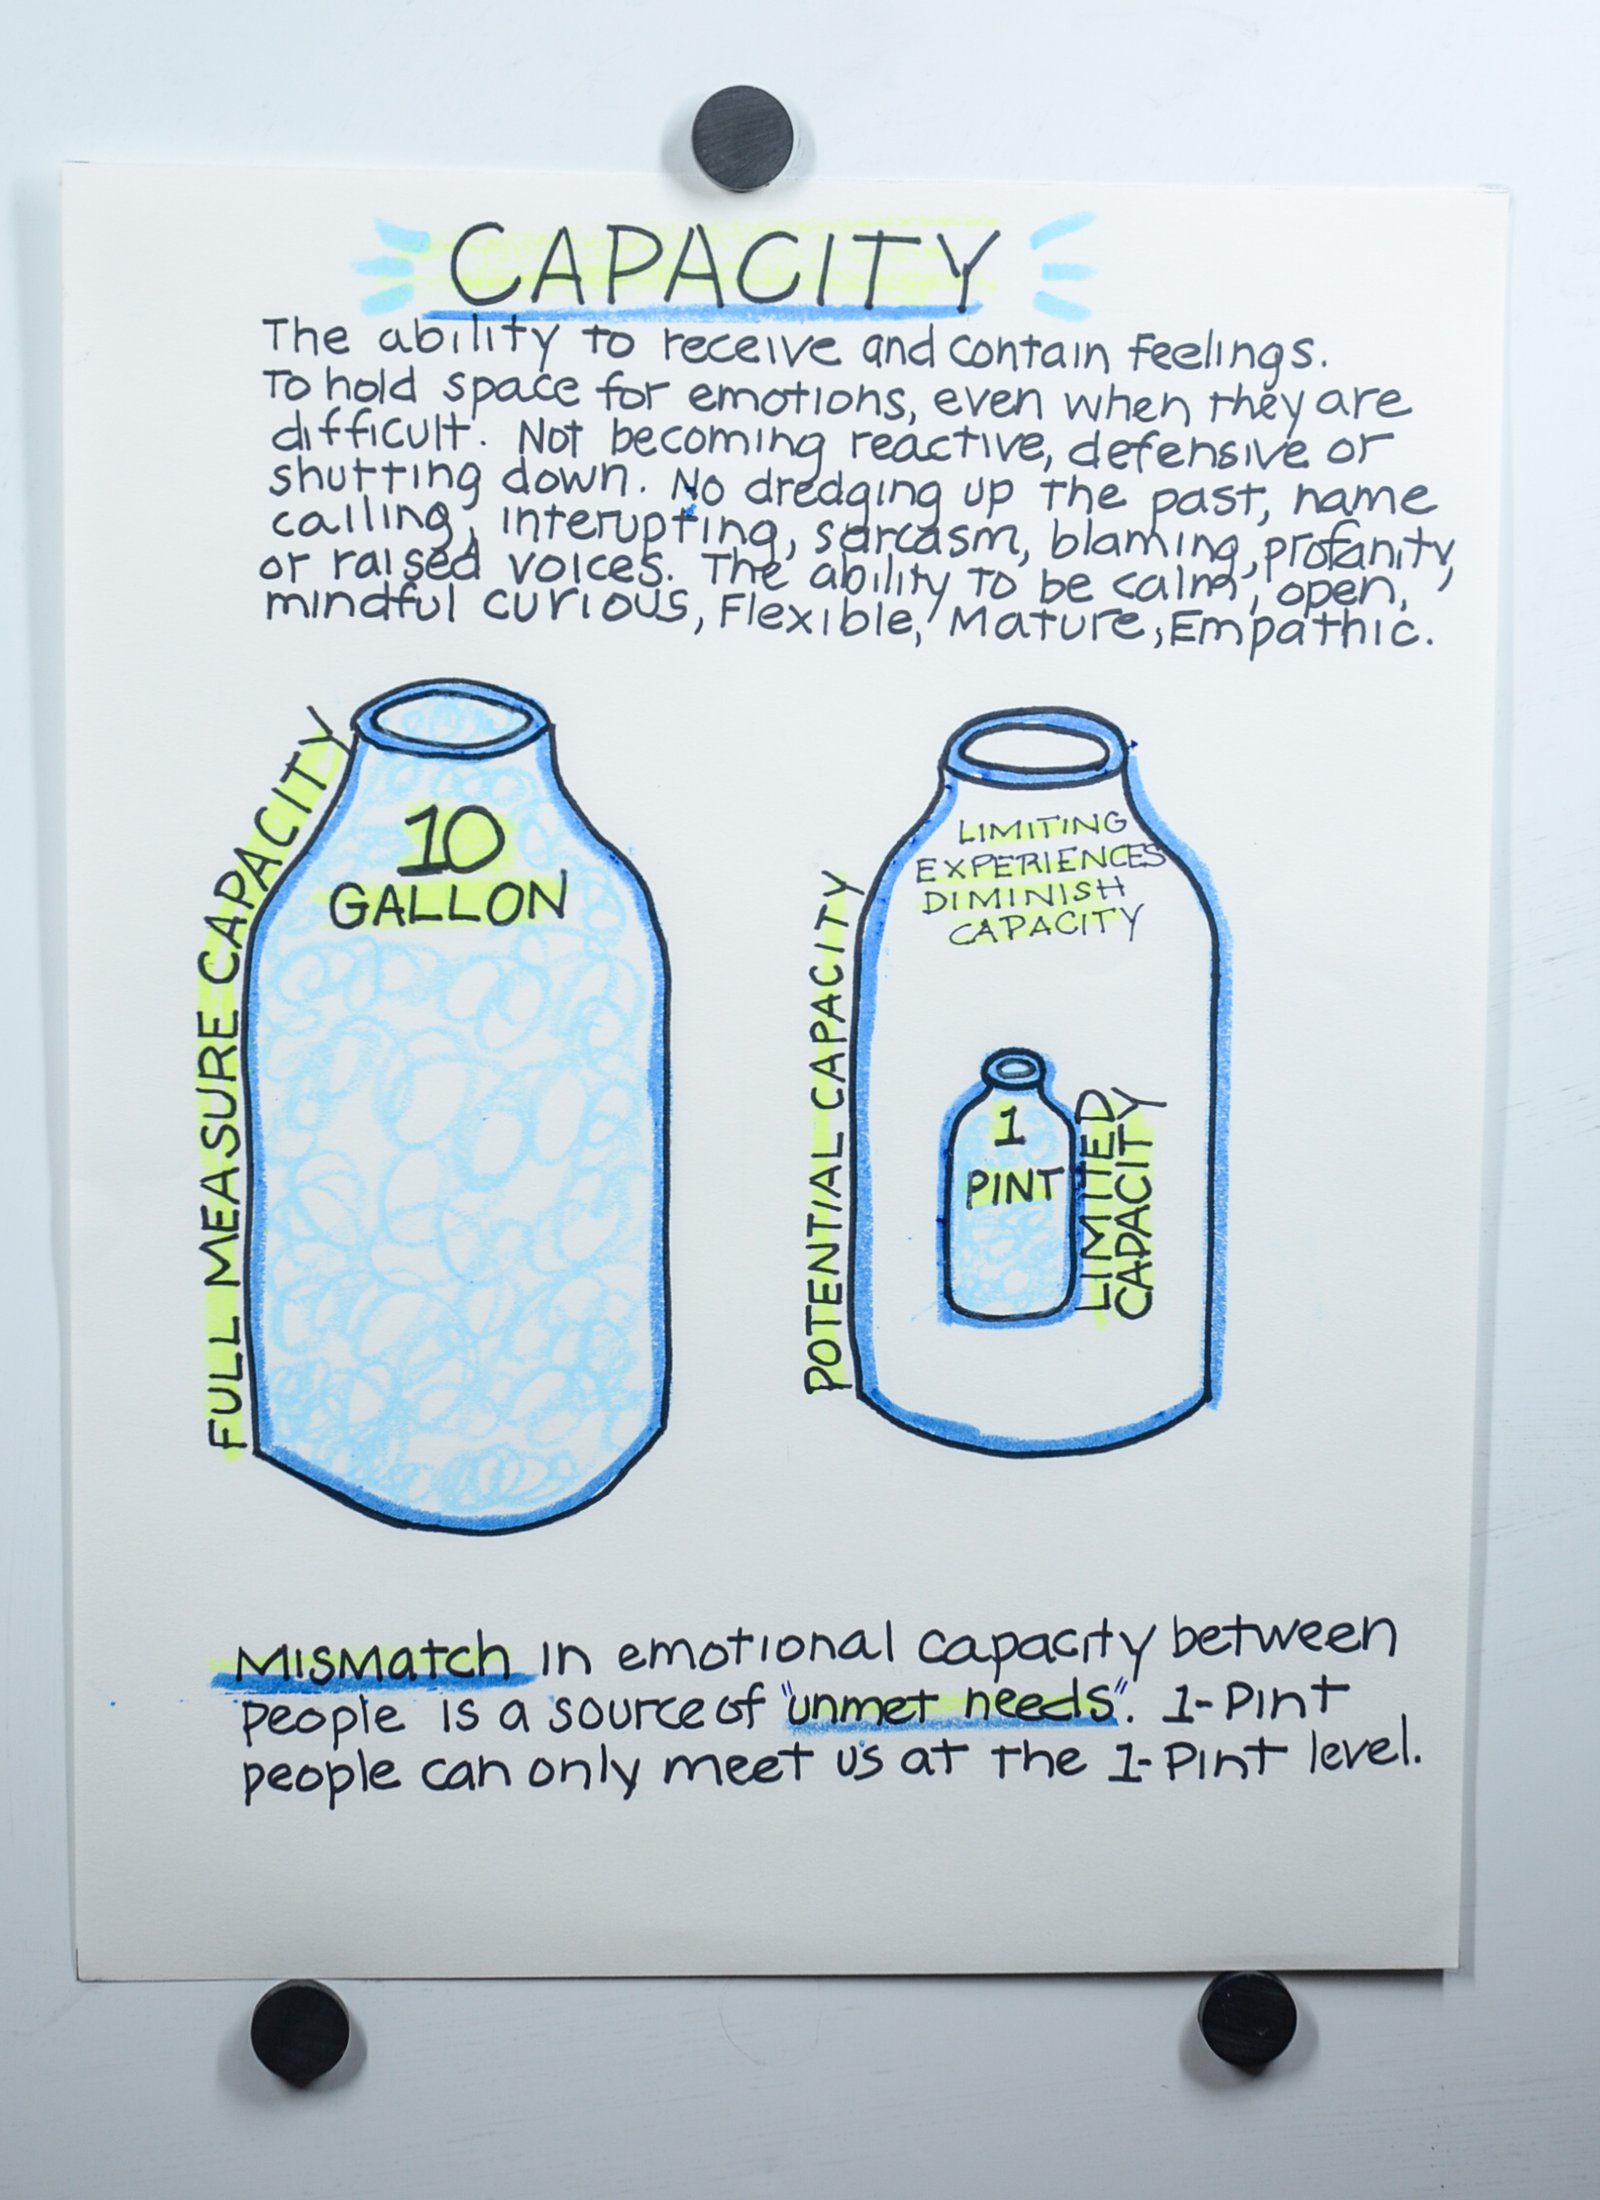 CAPACITY
The ability to receive and contain feelings.
To hold space for emotions, even when they are
difficult. Not becoming reactive, defensive or
shutting down. No dredging up the past, name
calling, interupting, sarcasm, blaming, profanity,
or raised voices. The ability to be calm, open,
mindful curious, Flexible, Mature, Empathic.
FULL MEASURE CAPACITY
10
GALLON
POTENTIAL CAPACITY
LIMITING
EXPERIENCES
DIMINISH
CAPACITY
1
PINT
LIMITED
CAPACITY
Mismatch in emotional capacity between
people is a source of "unmet needs". 1-Pint
people can only meet us at the 1-Pint level.